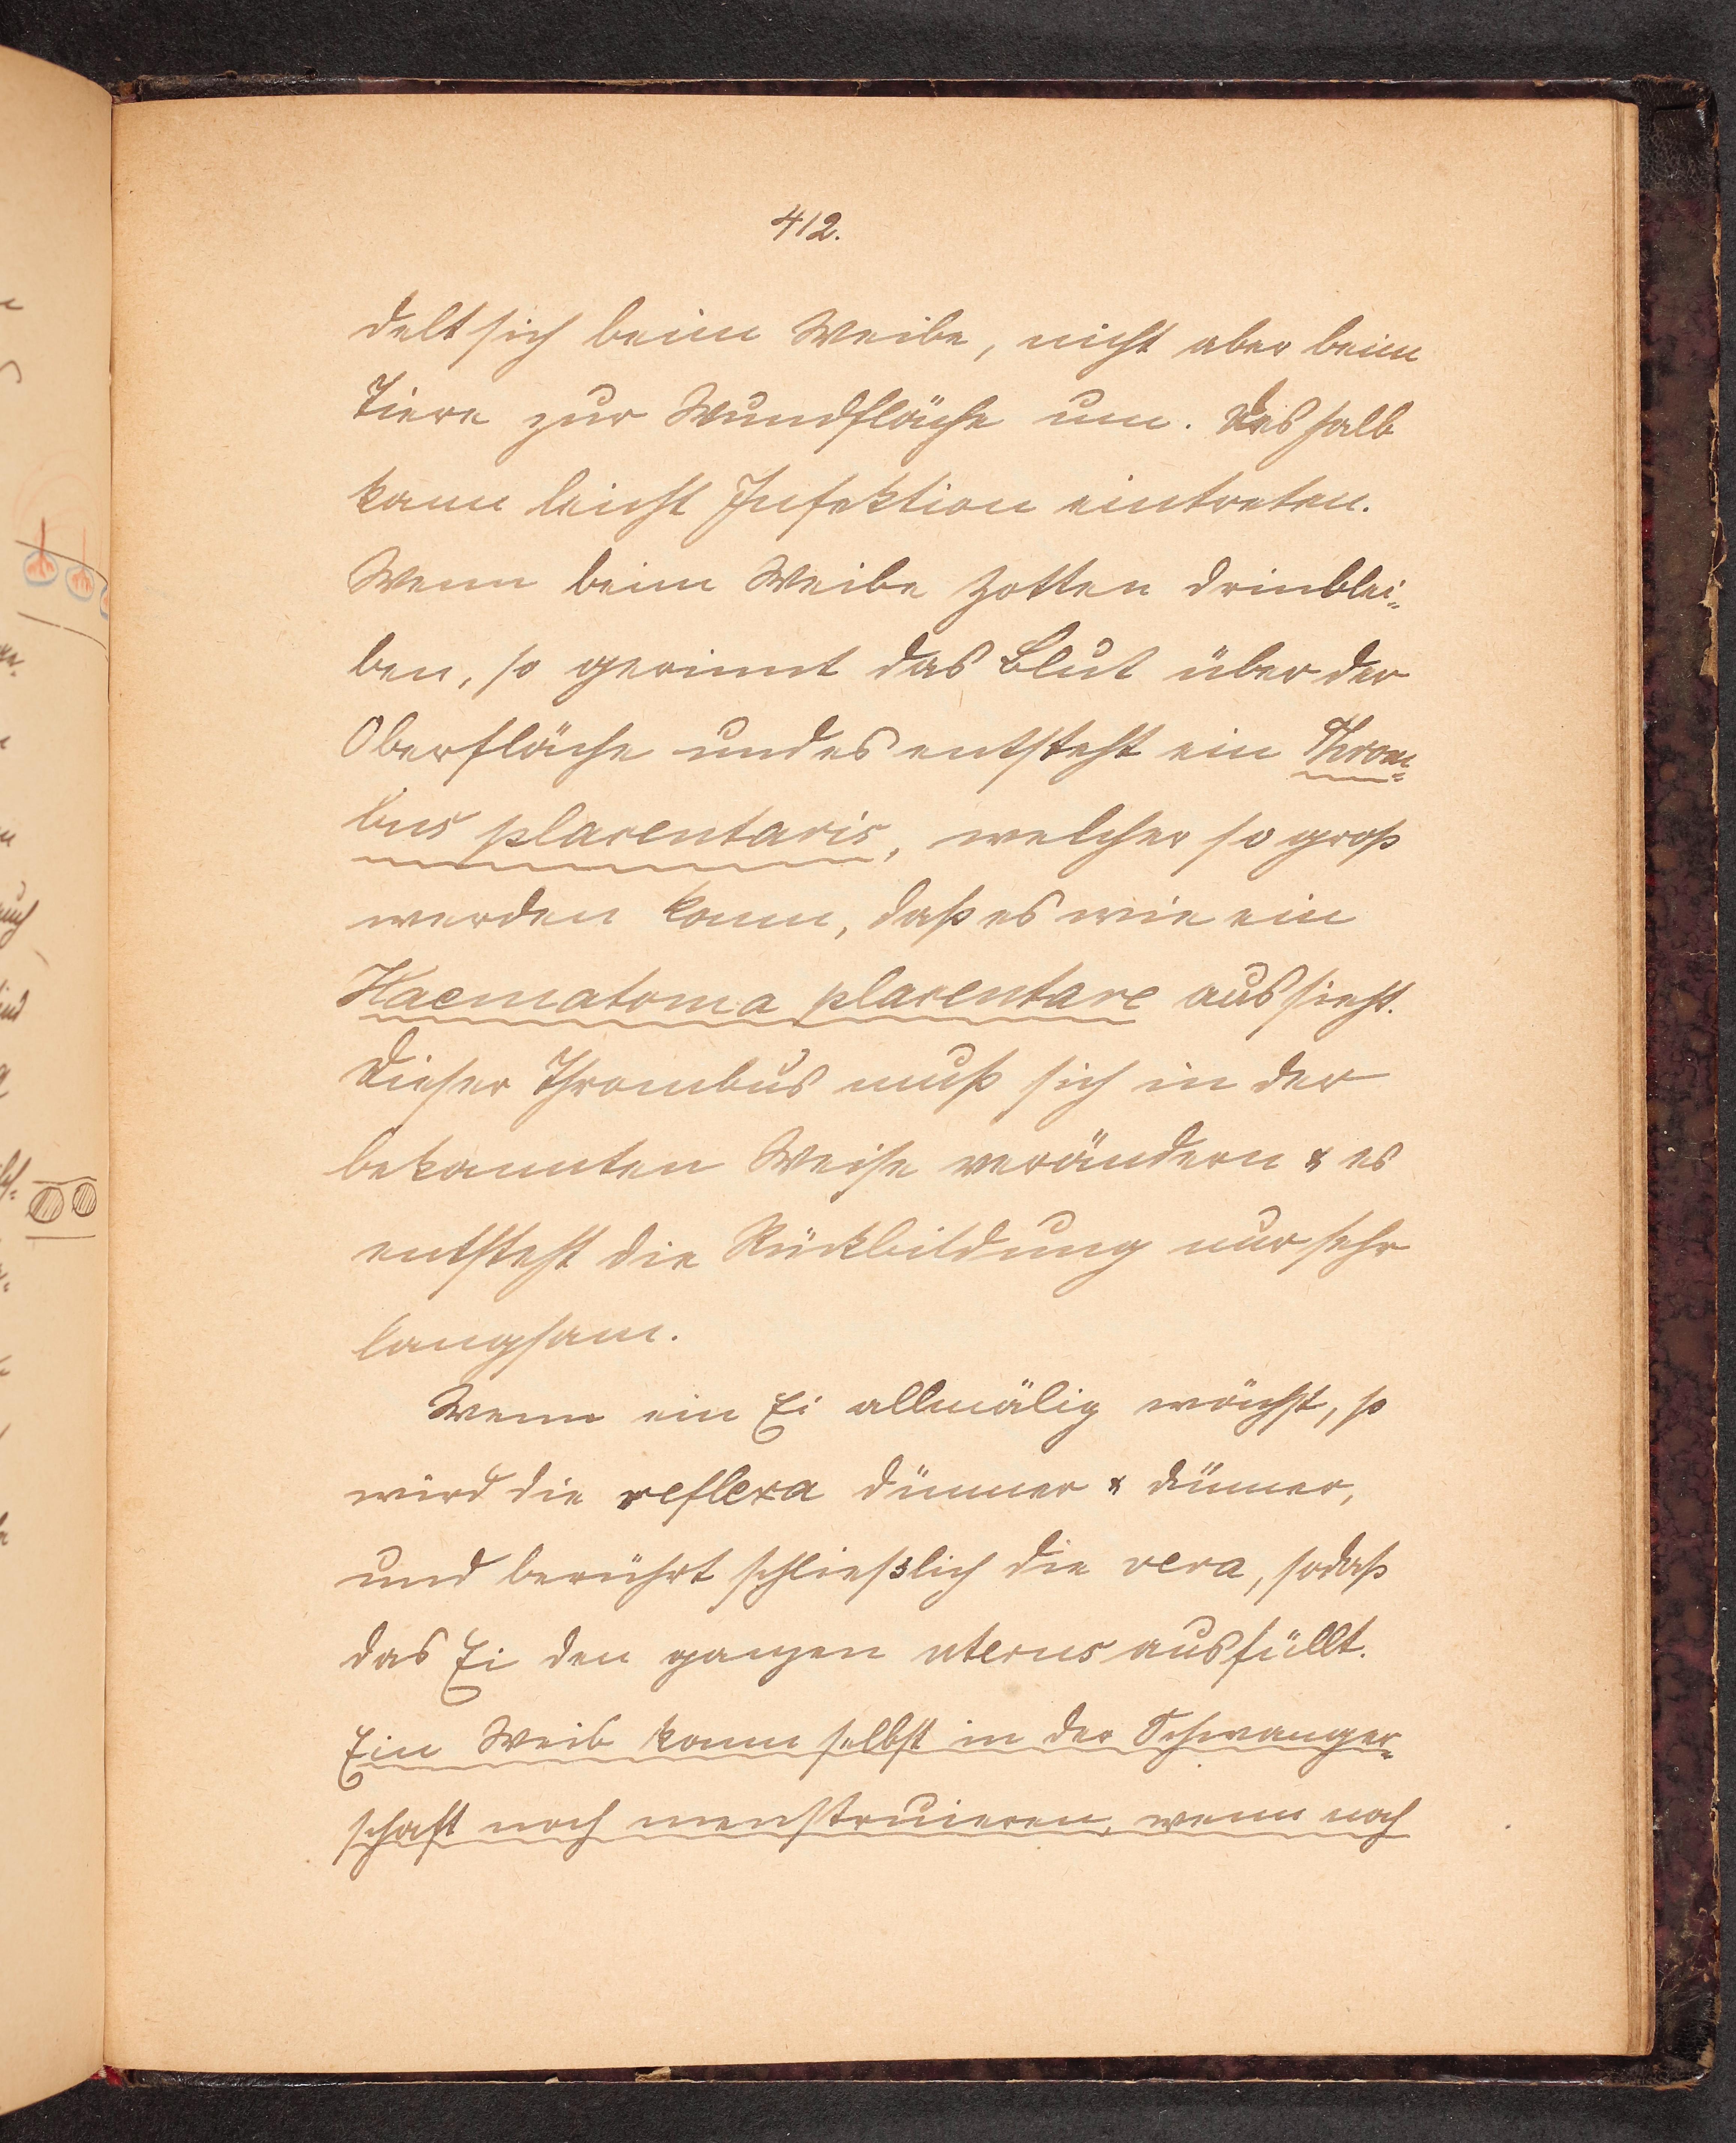 412.
delt sich beim Weibe, nicht aber beim
Tiere zur Wundfläche um. Deshalb
kann leicht Infektion eintreten.
Wenn beim Weibe Zotten drinblei=
ben, so gerinnt das Blut über der
Oberfläche und es entsteht ein Throm=
bus placentaris, welcher so groß
werden kann, daß es wie ein
Haematoma placentare aussieht.
Dieser Thrombus muß sich in der
bekannten Weise verändern & es
entsteht die Rückbildung nur sehr
langsam.
Wenn ein Ei allmälig wächst, so
wird die reflexa dünner & dünner,
und berührt schließlich die vera, sodaß
das Ei den ganzen uterus ausfüllt.
Ein Weib kann selbst in der Schwanger=
schaft noch menstruieren, wenn noch